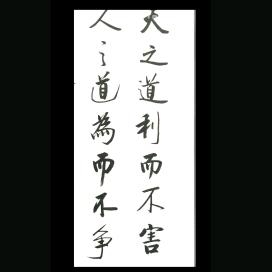 天之道利而不害
人之道為而不争